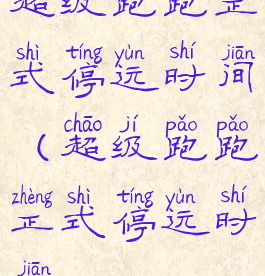 超级跑跑正
shì tíng yùn shí jiān
式停运时间
chāo jí pǎo pǎo
(超级跑跑
zhèng shì tíng yùn shí
正式停运时
jiān